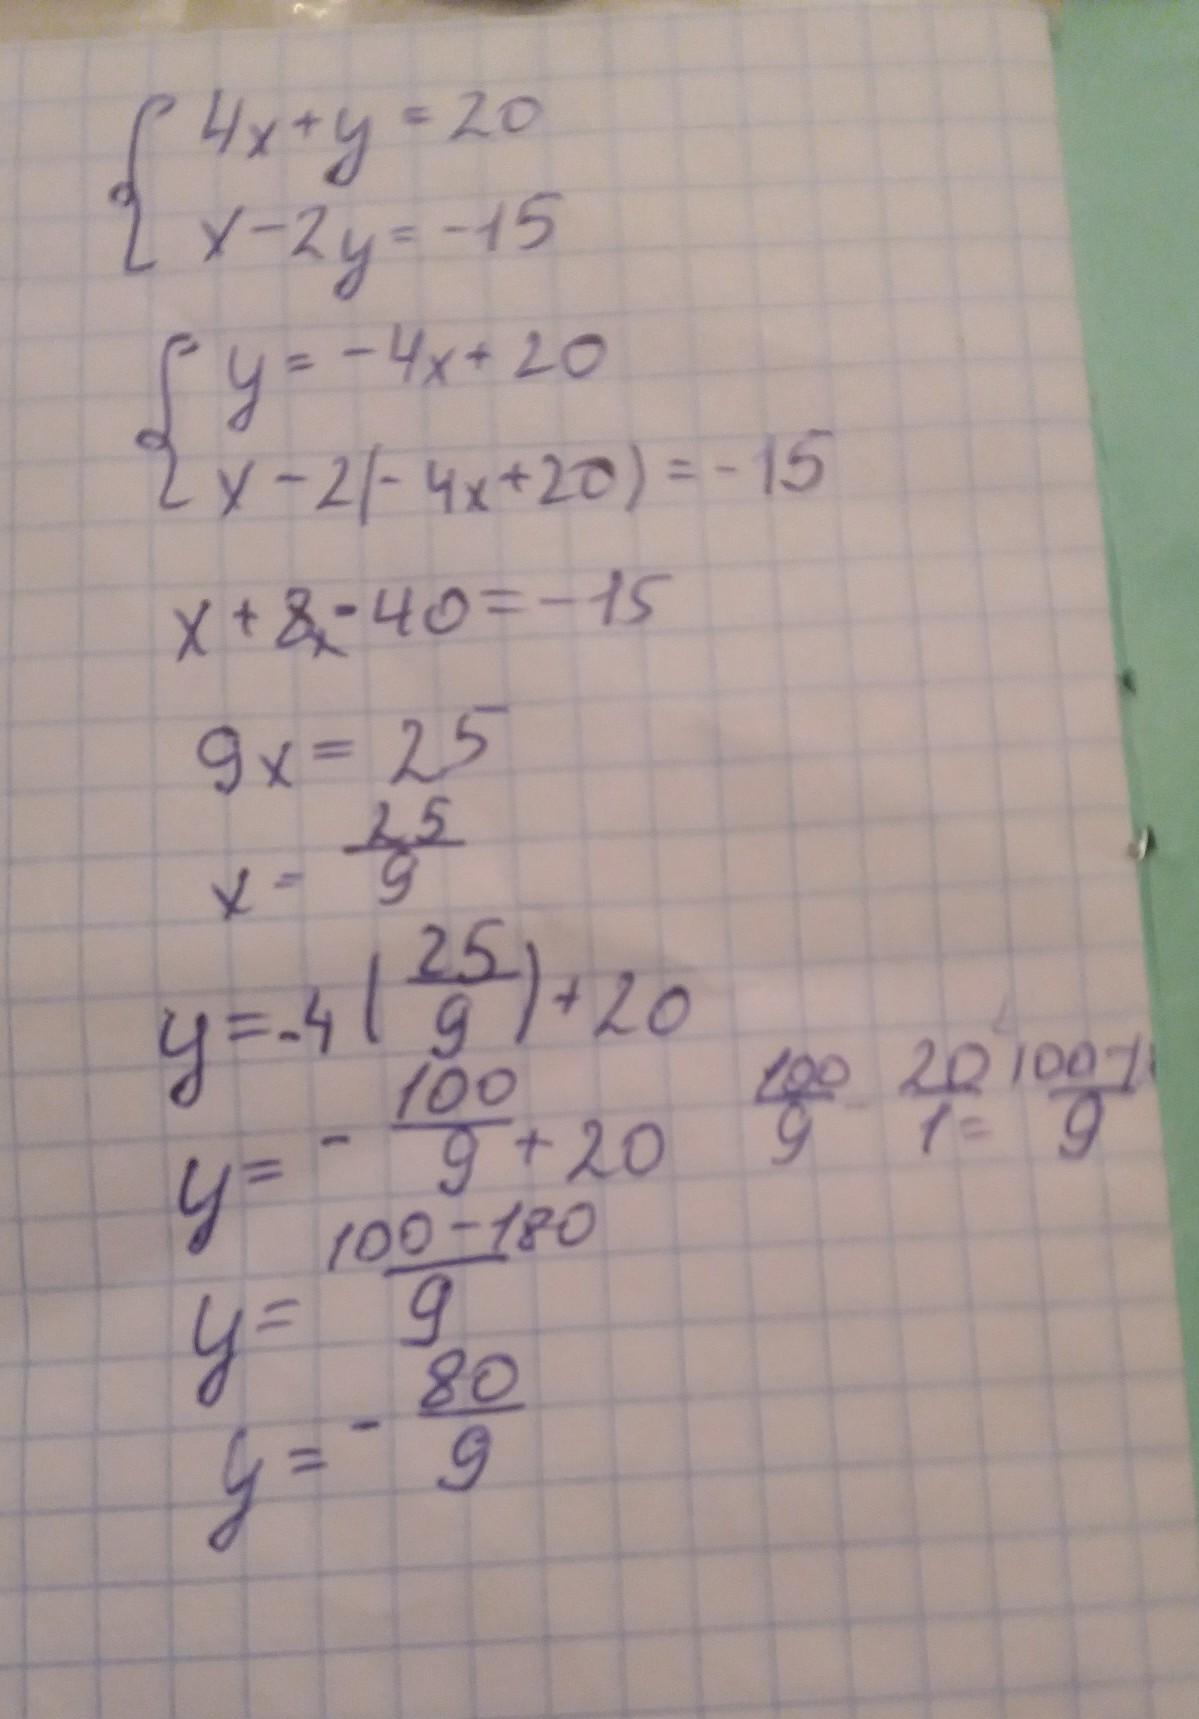 { 4x+y=20
x-2y=-15
{ y=-4x+20
x-2(-4x+20)=-15
x+8x-40=-15
9x=25
x=25/9
y=-4(25/9)+20
y=-100/9+20
100/9-20/1=100-1/9
y=100-180/9
y=-80/9